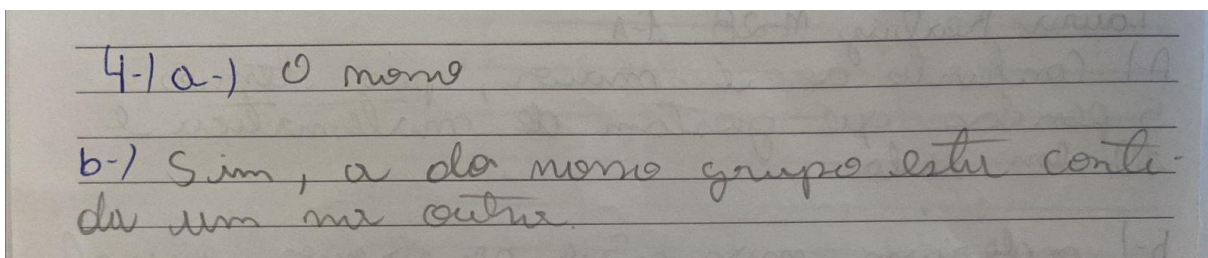 4-) a-) O nono
b-) Sim, a do nono grupo esta conti-
da um na outra.